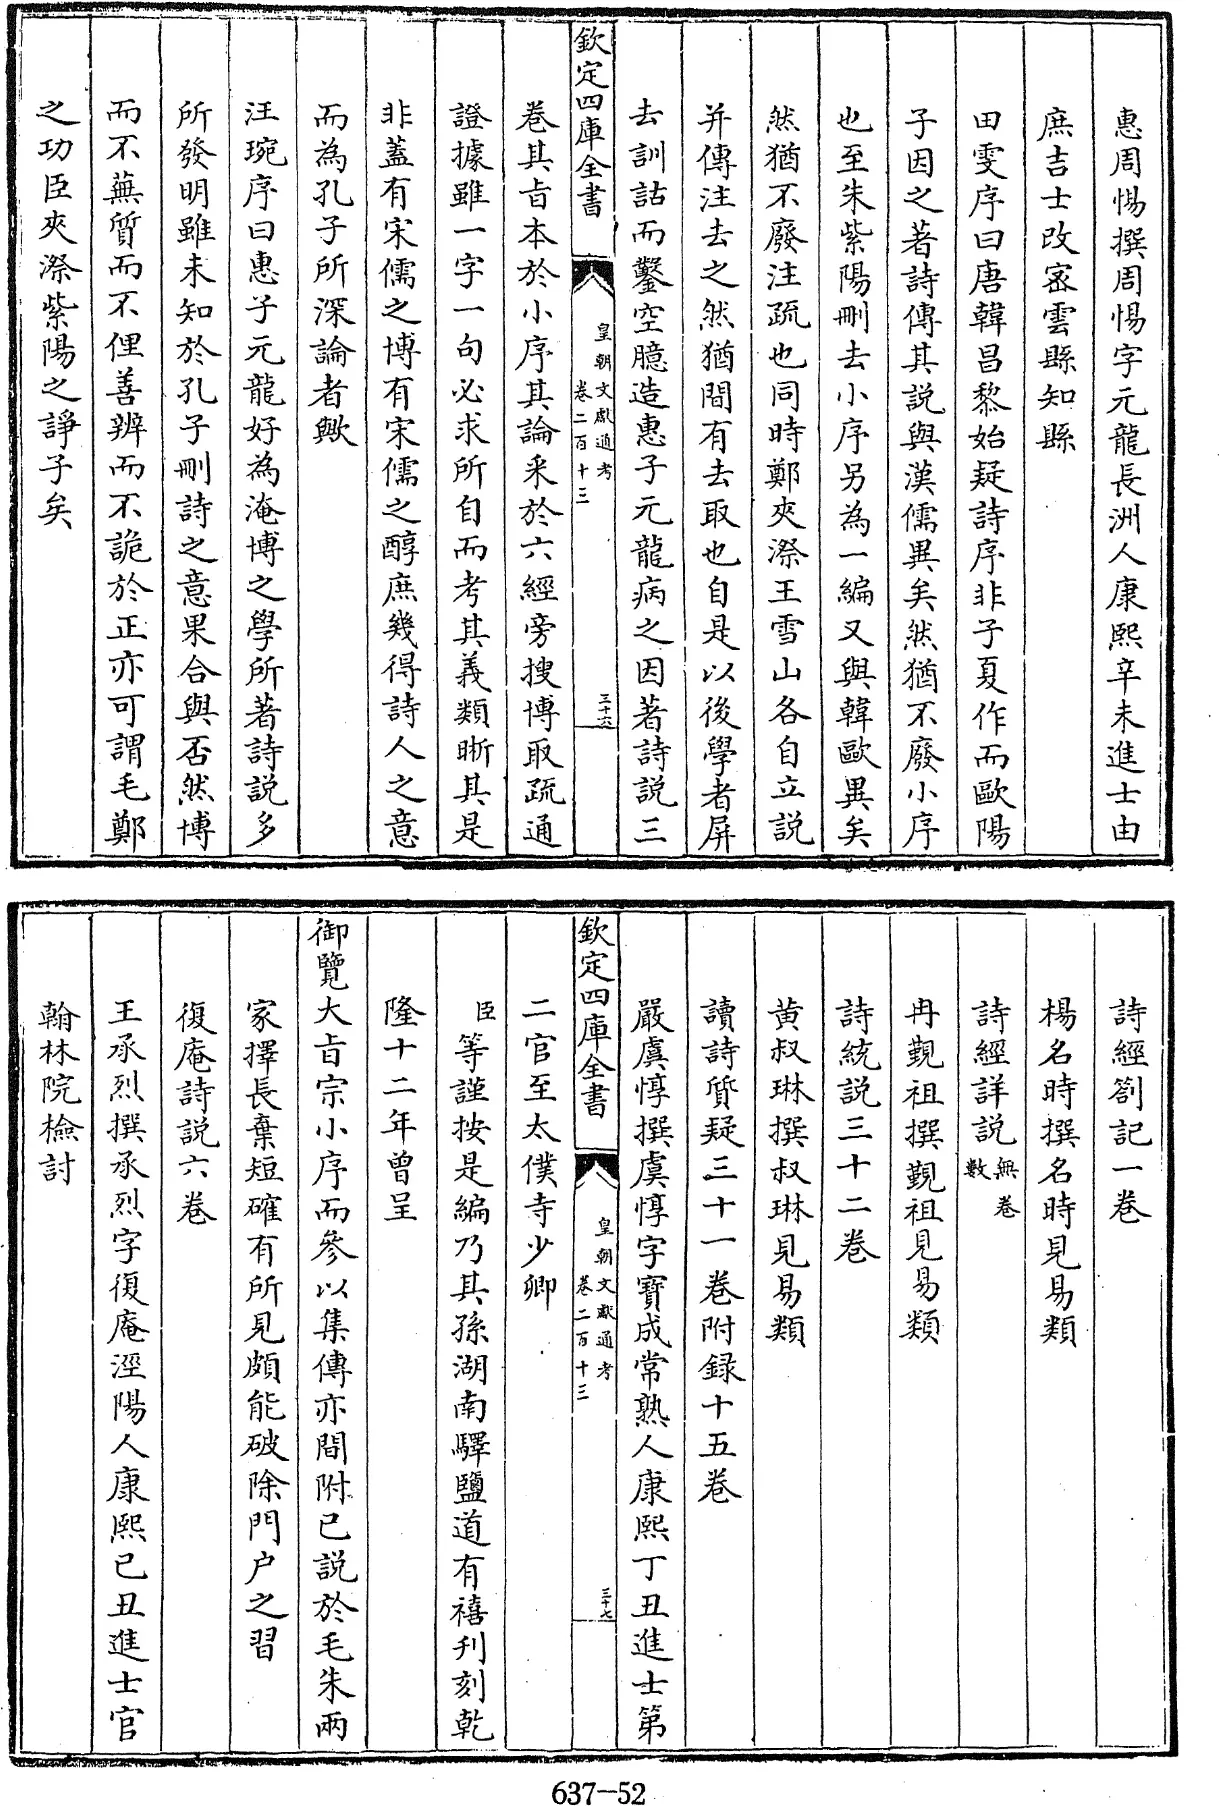 惠周惕撰周惕字元龍長洲人康熙辛未進士由
庶吉士改宻雲縣知縣
田雯序曰唐韓昌黎始疑詩序非子夏作而歐陽
子因之著詩傳其説與漢儒異矣然猶不廢小序
也至朱紫陽刪去小序另為一編又與韓歐異矣
然猶不廢注疏也同時鄭夾漈王雪山各自立説
并傳注去之然猶間有去取也自是以後學者屏
去訓詁而鑿空臆造惠子元龍病之因著詩説三
欽定四庫全書
皇朝文獻通考
卷二百十三
三十六
卷其旨本於小序其論采於六經旁搜博取疏通
證據雖一字一句必求所自而考其義類晰其是
非蓋有宋儒之博有宋儒之醇庶幾得詩人之意
而為孔子所深論者歟
汪琬序曰惠子元龍好為淹博之學所著詩説多
所發明雖未知於孔子刪詩之意果合與否然博
而不蕪質而不俚善辨而不詭於正亦可謂毛鄭
之功臣夾漈紫陽之諍子矣
詩經劄記一卷
楊名時撰名時見易類
詩經詳説無卷數
冉覲祖撰覲祖見易類
詩統説三十二卷
黄叔琳撰叔琳見易類
讀詩質疑三十一卷附録十五卷
嚴虞惇撰虞惇字寶成常熟人康熙丁丑進士第
欽定四庫全書
皇朝文獻通考
卷二百十三
三十七
二官至太僕寺少卿
臣等謹按是編乃其孫湖南驛鹽道有禧刋刻乾
隆十二年曾呈
御覽大旨宗小序而參以集傳亦間附已説於毛朱兩
家擇長棄短確有所見頗能破除門户之習
復庵詩説六卷
王承烈撰承烈字復庵涇陽人康熙己丑進士官
翰林院檢討
637-52